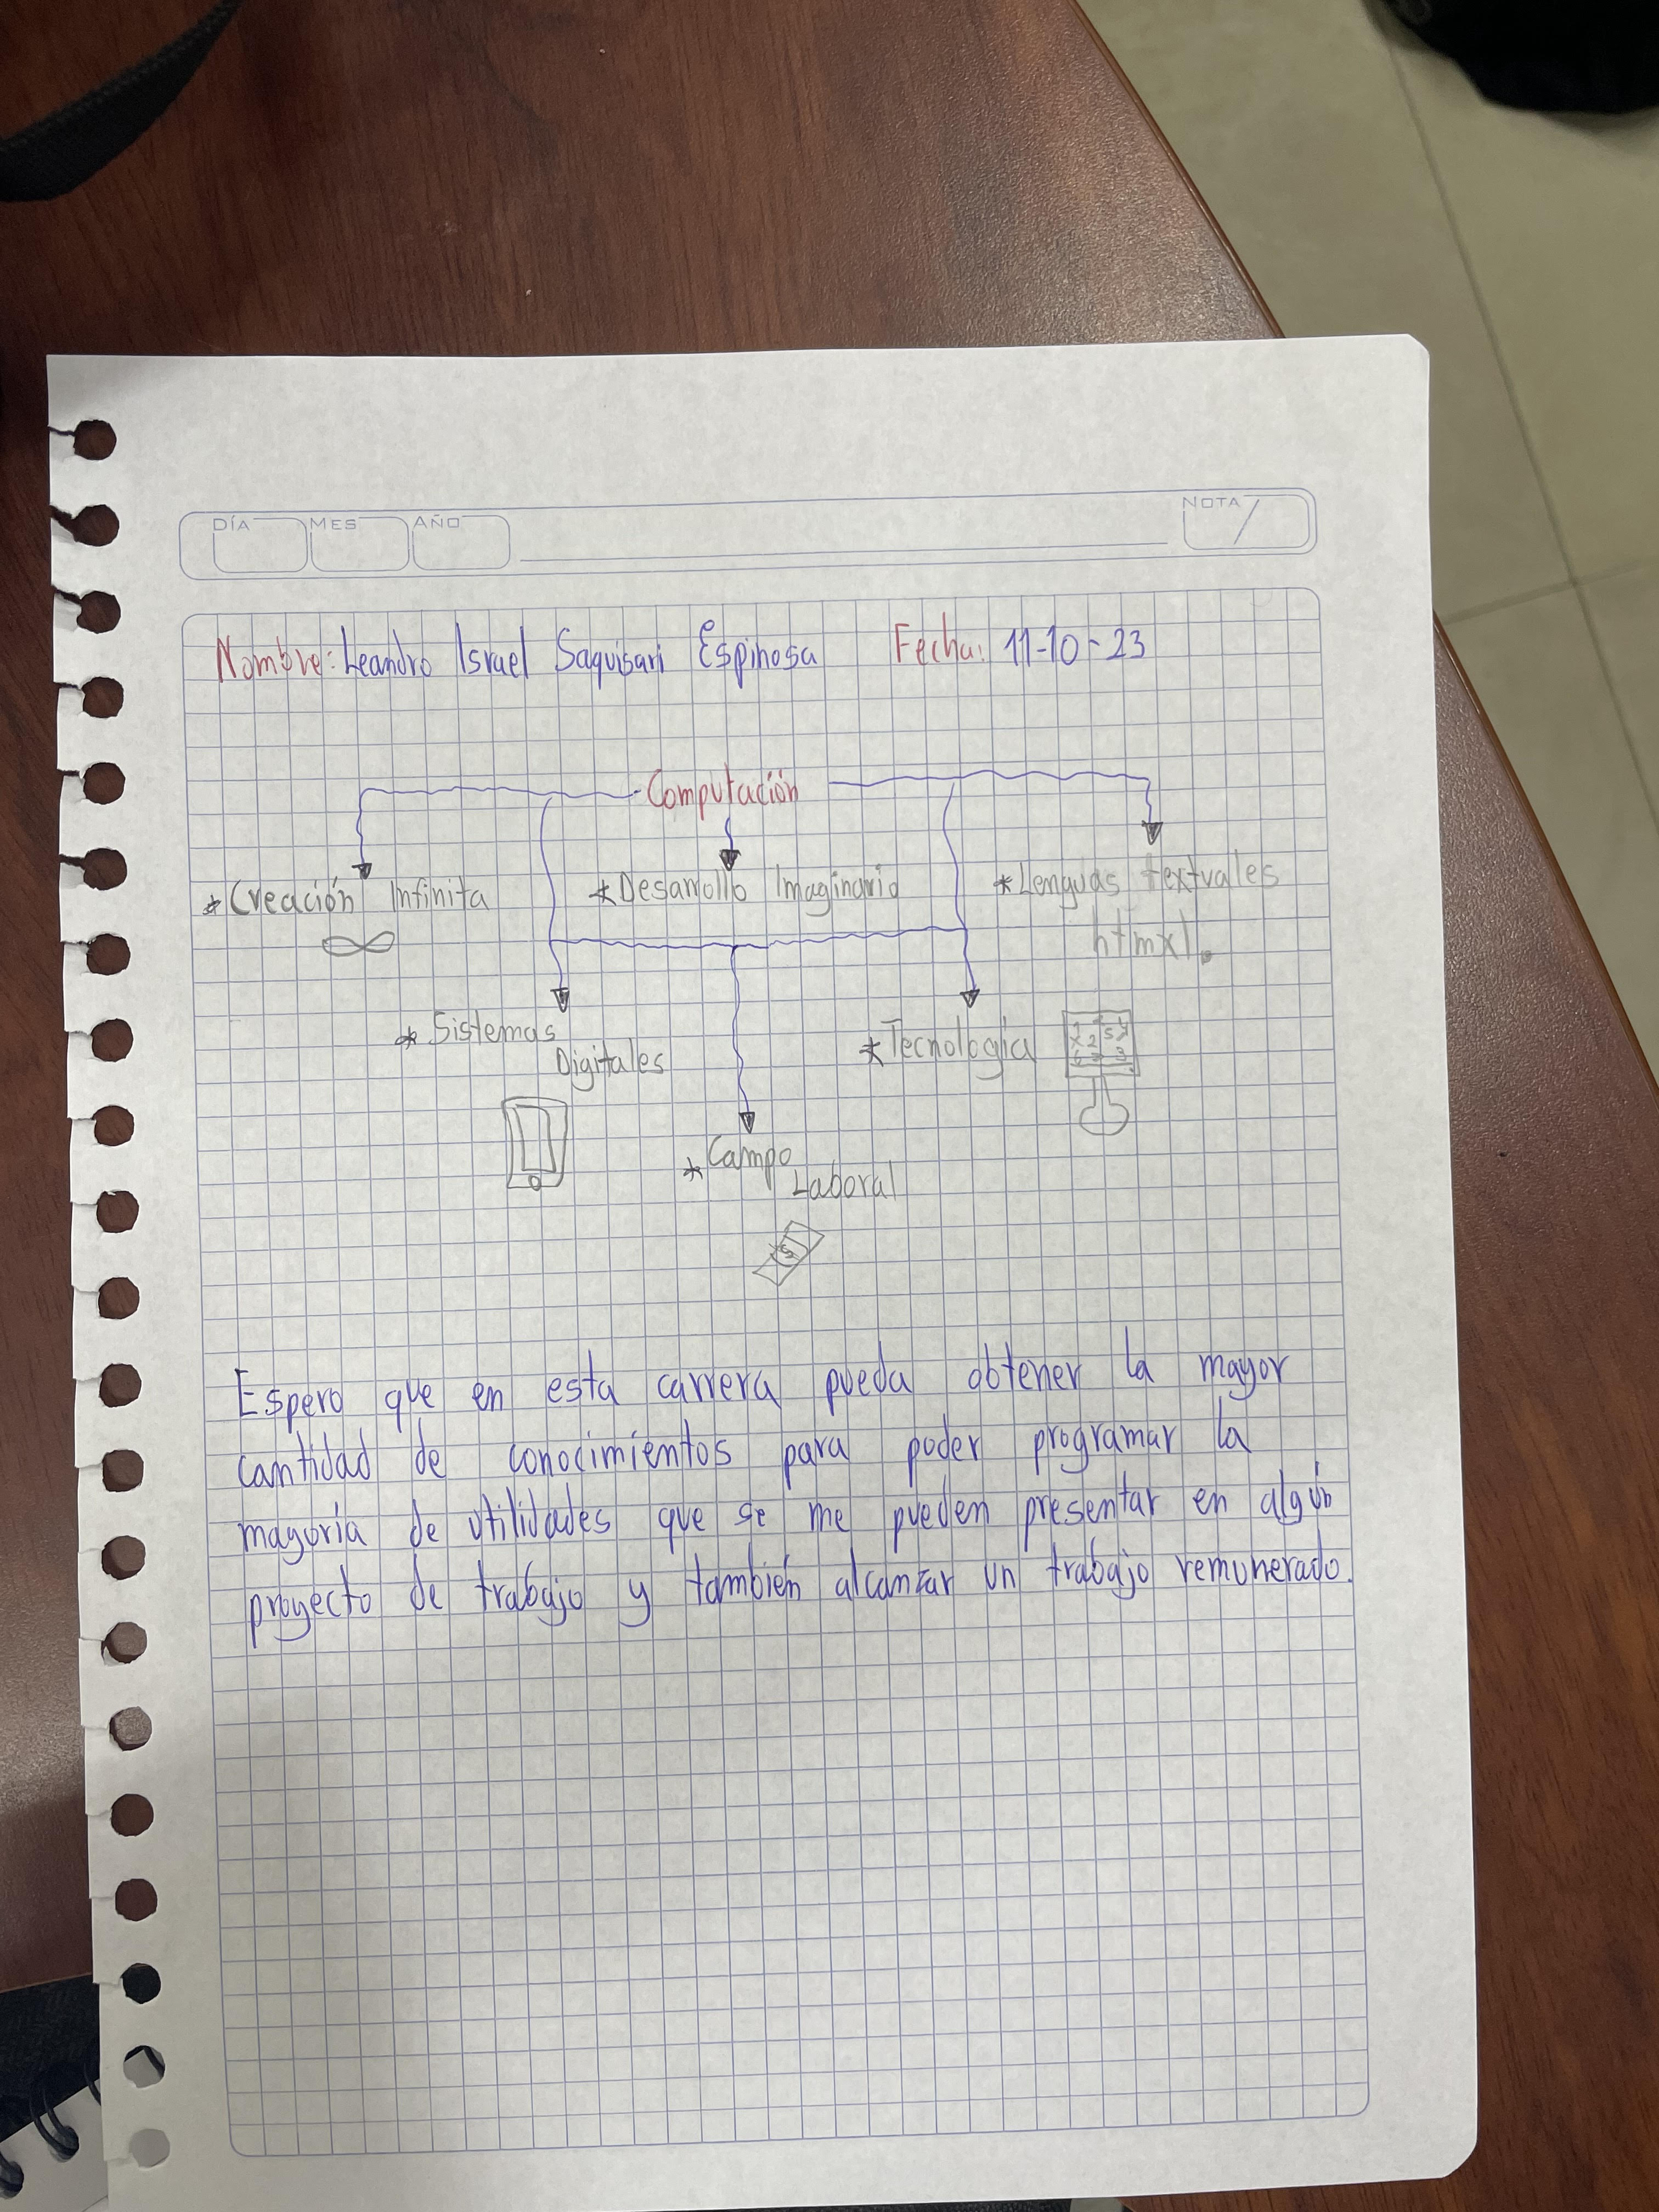 DÍA MES AÑO NOTA
Nombre: Leandro Israel Saquisari Espinosa Fecha: 11-10-23
Computación
*Creación Infinita *Desarrollo Imaginario *Lenguas textuales
htmxl.
* Sistemas
Digitales
*Tecnología
*Campo
Laboral
$
Espero que en esta carrera pueda obtener la mayor
cantidad de conocimientos para poder programar la
mayoria de utilidades que se me pueden presentar en algún
proyecto de trabajo y también alcanzar un trabajo remunerado.